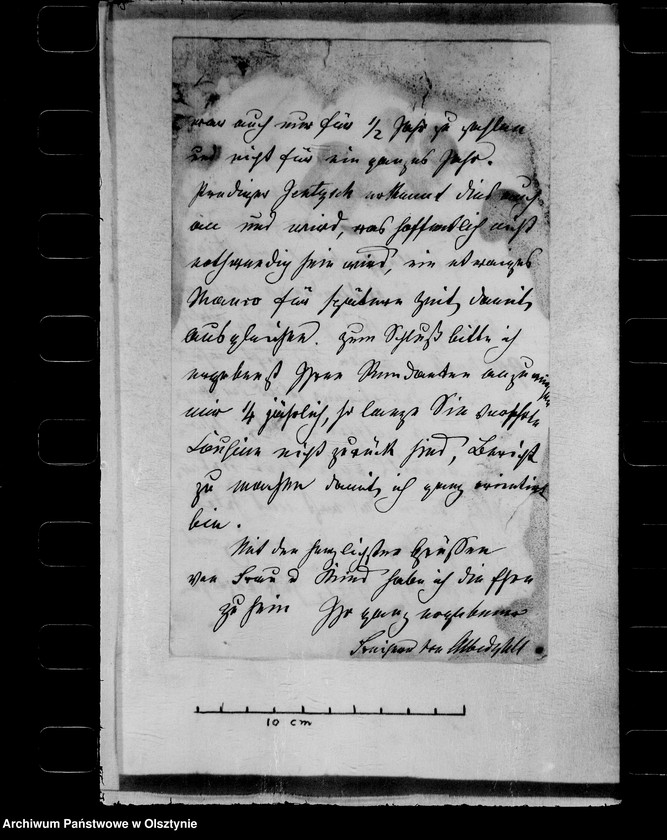 war auch nur für 1/2 Jahr zu zahlen
und nicht für ein ganzes Jahr.
Prediger Jentzsch erkennt dies auch
an und wird, was hoffentlich nicht
nothwendig sein wird, ein etwaiges
Manco für spätere Zeit, damit
ausgleichen. Zum Schluß bitte ich
ergebenst Ihren Rendanten anzuweisen
mir 1/4 jährlich, so lange Sie verehrte
Cousine nicht zurück sind, Bericht
zu machen damit ich ganz orientirt
bin.
Mit den herzlichsten Grüssen
von Frau & Kind habe ich die Ehre
zu sein Ihr ganz ergebener
Freiherr von Albedyhll
10 cm
Archiwum Państwowe w Olsztynie